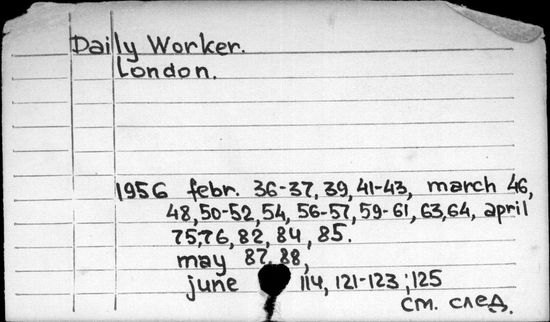 Daily Worker.
London.
1956 febr. 36-37, 39, 41-43, march 46,
48, 50-52, 54, 56-57, 59-61, 63, 64, april
75, 76, 82, 84, 85.
may 87, 88,
june 114, 121-123; 125
см. след.